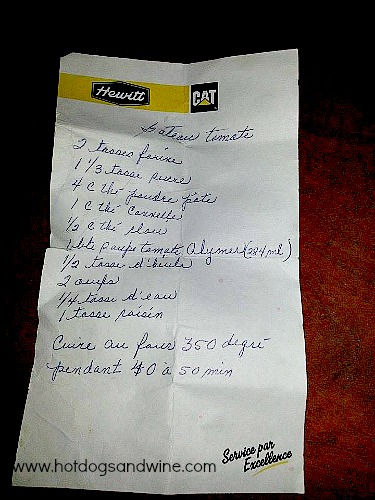 Hewitt CAT
Gateau tomate
2 tasses farine
1 1/3 tasse sucre
4 c thé poudre pate
1 c thé cannelle
1/2 c thé clou
1 bte soupe tomate Aylmer (284 ml)
1/2 tasse d'huile
2 oeufs
1/4 tasse d'eau
1 tasse raisin
Cuire au four 350 degré
pendant 40 à 50 min
Service par
Excellence
www.hotdogsandwine.com